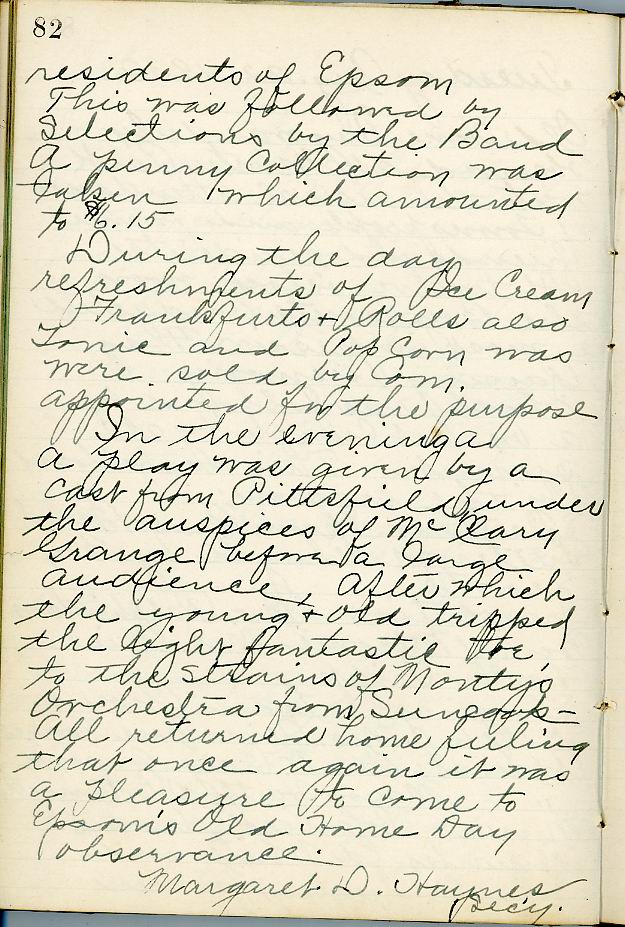 82
residents of Epsom
This was followed by
Selections by the Band
A penny Collection was
taken which amounted
to $6.15
During the day
refreshments of Ice Cream
Frankfurts + Rolls also
Tonic and Pop Corn was
were sold by Com.
appointed for the purpose
In the evening a
a play was given by a
cast from Pittsfield, under
the auspices of Mc Clary
Grange before a large
audience, After which
the young + old tripped
the light fantastic toe,
to the strains of Monty's
Orchestra from Suncook -
All returned home feeling
that once again it was
a pleasure to come to
Epsom's Old Home Day
observance.
Margaret D. Haynes
Sec'y.